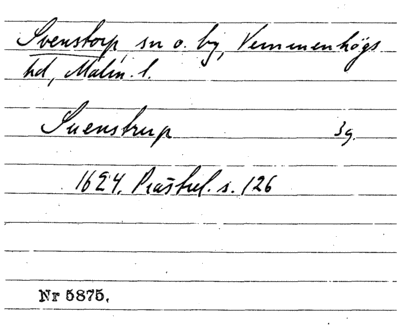 Svenstorp, sn o. by, Vemmenhögs
hd, Malm. l.
Suenstrup 3g.
1624. s. 126
Nr 5875.